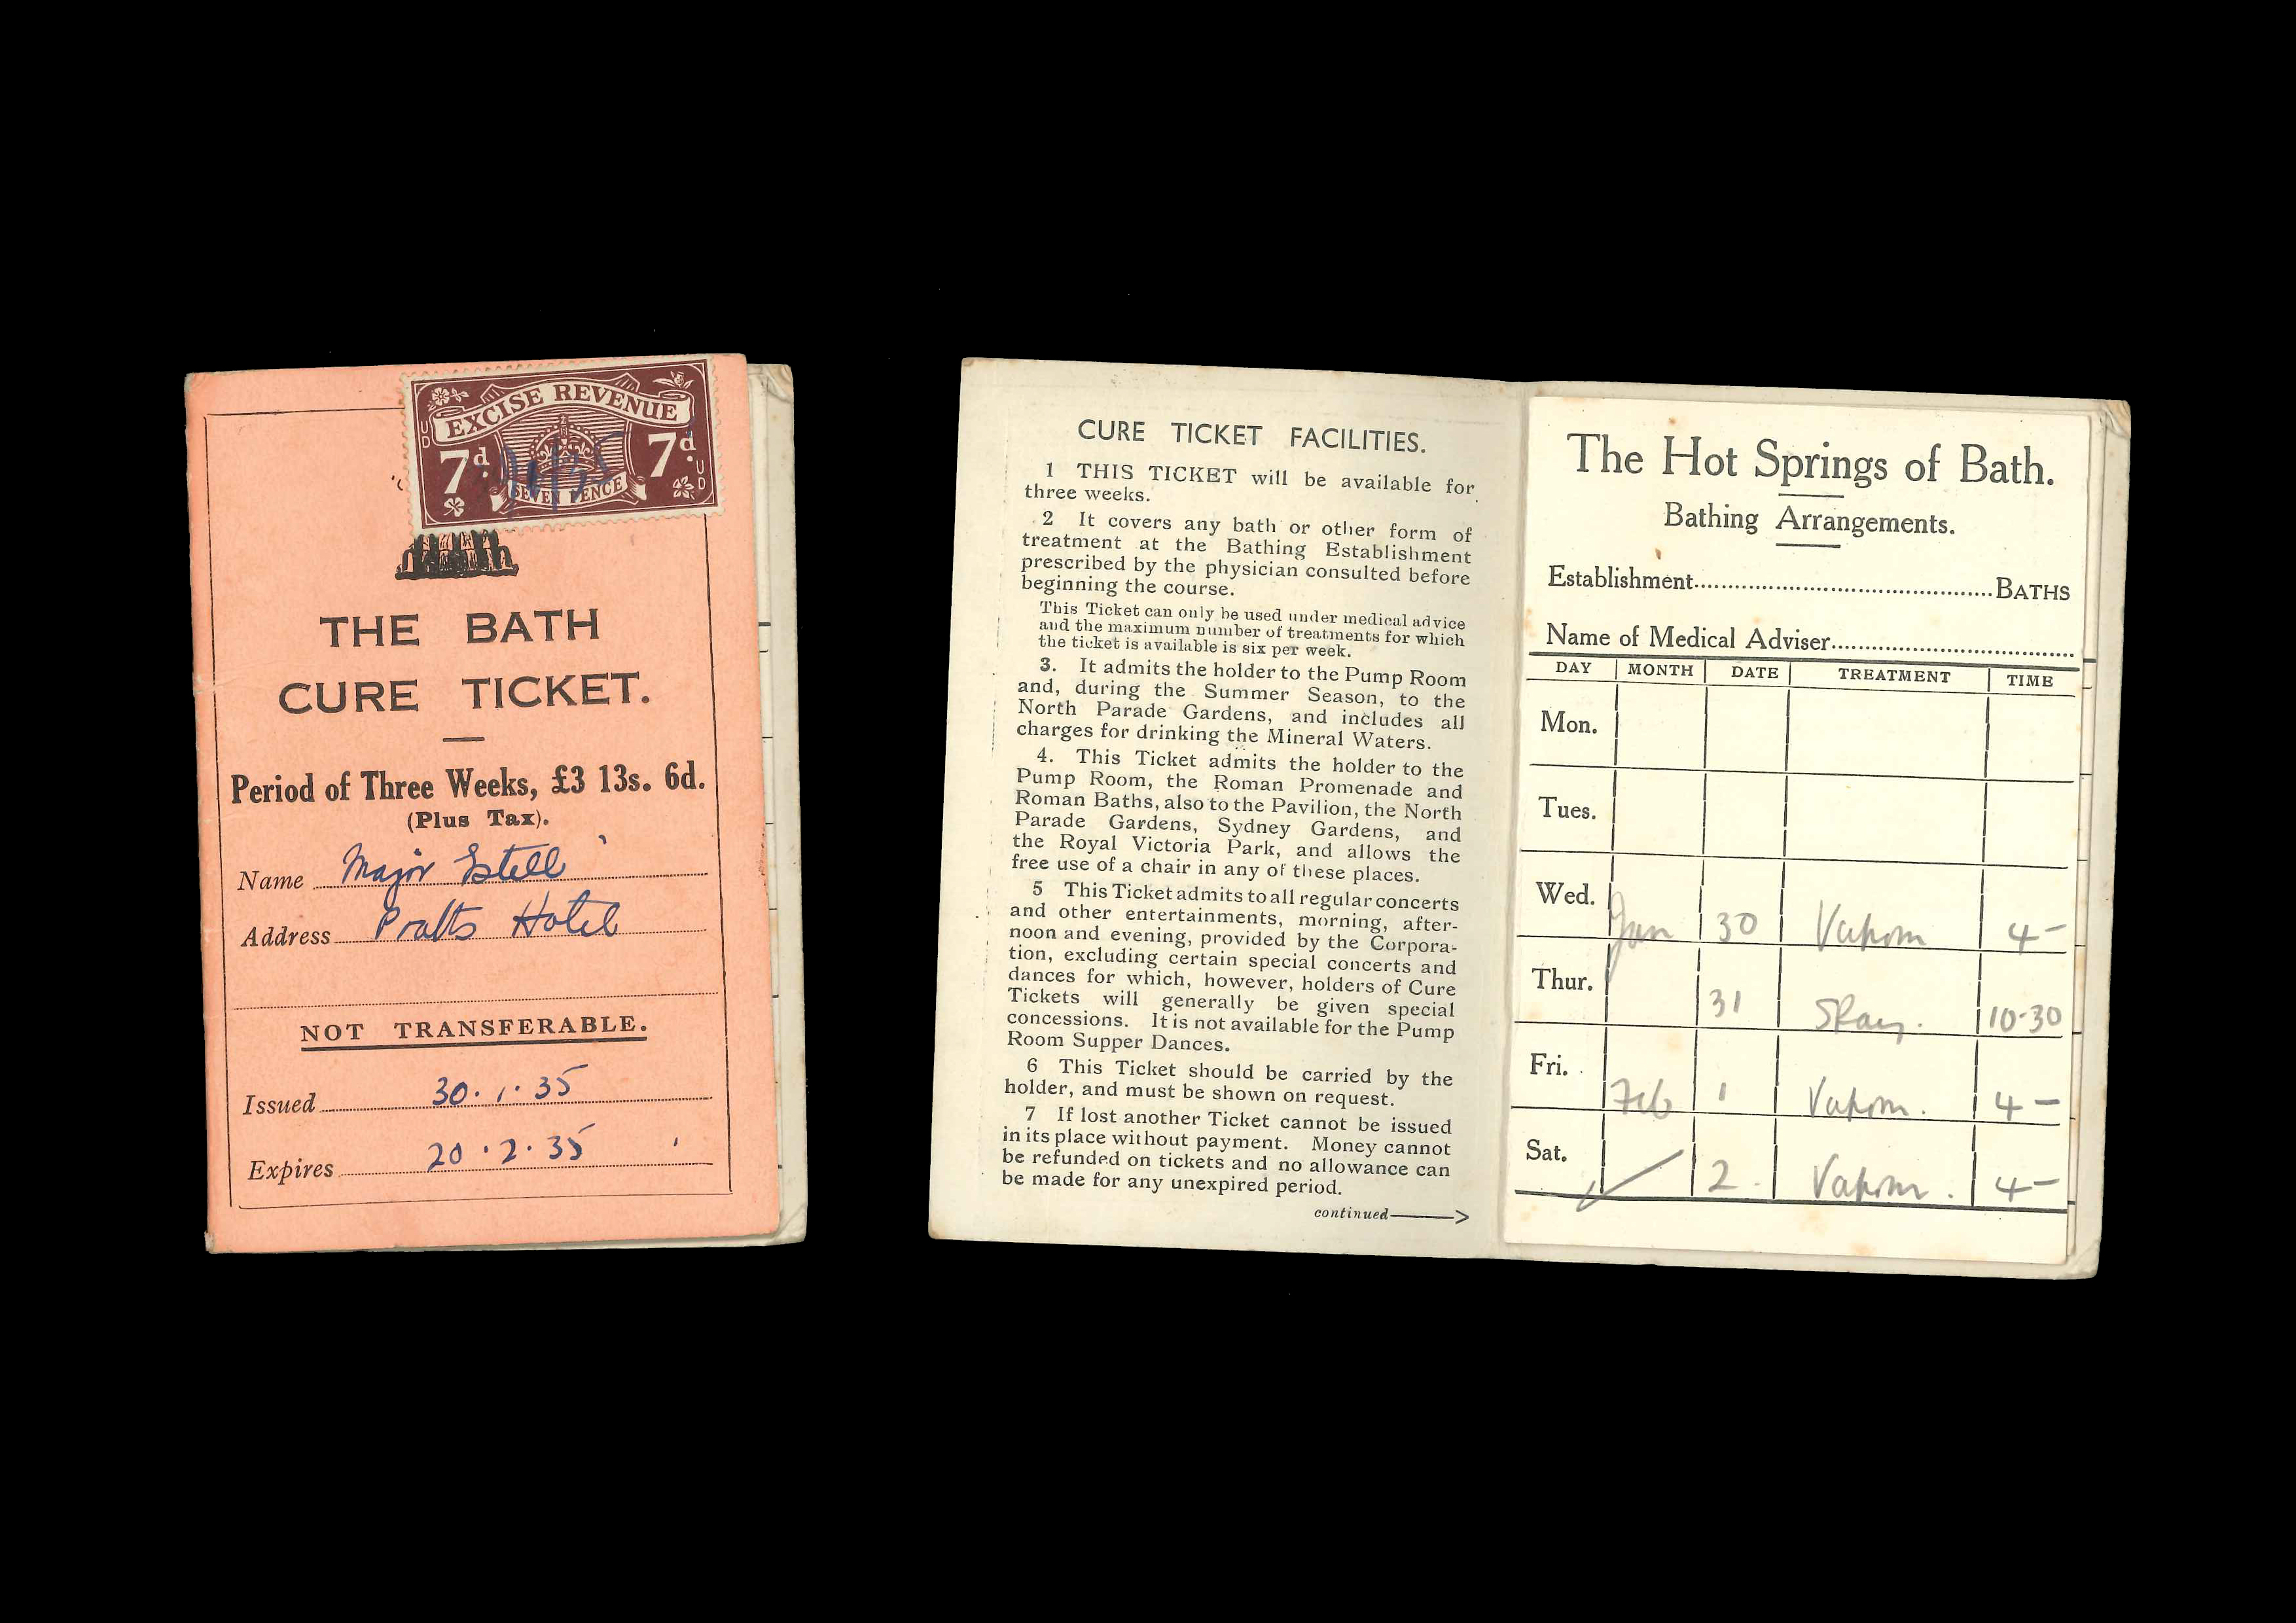 EXCISE REVENUE
7d. 7d.
UD UD
SEVEN PENCE
THE BATH
CURE TICKET.
Period of Three Weeks, £3 13s. 6d.
(Plus Tax).
Name Major Estell
Address Pratts Hotel
NOT TRANSFERABLE.
Issued 30.1.35
Expires 20.2.35
CURE TICKET FACILITIES.
1 THIS TICKET will be available for
three weeks.
2 It covers any bath or other form of
treatment at the Bathing Establishment
prescribed by the physician consulted before
beginning the course.
This Ticket can only be used under medical advice
and the maximum number of treatments for which
the ticket is available is six per week.
3. It admits the holder to the Pump Room
and, during the Summer Season, to the
North Parade Gardens, and includes all
charges for drinking the Mineral Waters.
4. This Ticket admits the holder to the
Pump Room, the Roman Promenade and
Roman Baths, also to the Pavilion, the North
Parade Gardens, Sydney Gardens, and
the Royal Victoria Park, and allows the
free use of a chair in any of these places.
5 This Ticket admits to all regular concerts
and other entertainments, morning, after-
noon and evening, provided by the Corpora-
tion, excluding certain special concerts and
dances for which, however, holders of Cure
Tickets will generally be given special
concessions. It is not available for the Pump
Room Supper Dances.
6 This Ticket should be carried by the
holder, and must be shown on request.
7 If lost another Ticket cannot be issued
in its place without payment. Money cannot
be refunded on tickets and no allowance can
be made for any unexpired period.
continued
The Hot Springs of Bath.
Bathing Arrangements.
Establishment BATHS
Name of Medical Adviser
DAY MONTH DATE TREATMENT TIME
Mon.
Tues.
Wed. Jan 30 Vapour 4-
Thur. 31 Spray. 10-30
Fri. Feb 1 Vapour. 4-
Sat. 2. Vapour. 4-